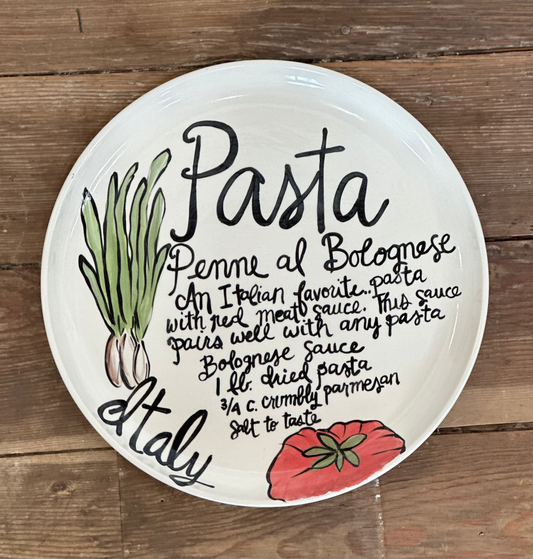 Pasta
Penne al Bolognese
An Italian favorite...pasta
with red meat sauce. This sauce
pairs well with any pasta
Bolognese Sauce
1 lb. dried pasta
3/4 c. crumbly parmesan
Salt to taste
Italy